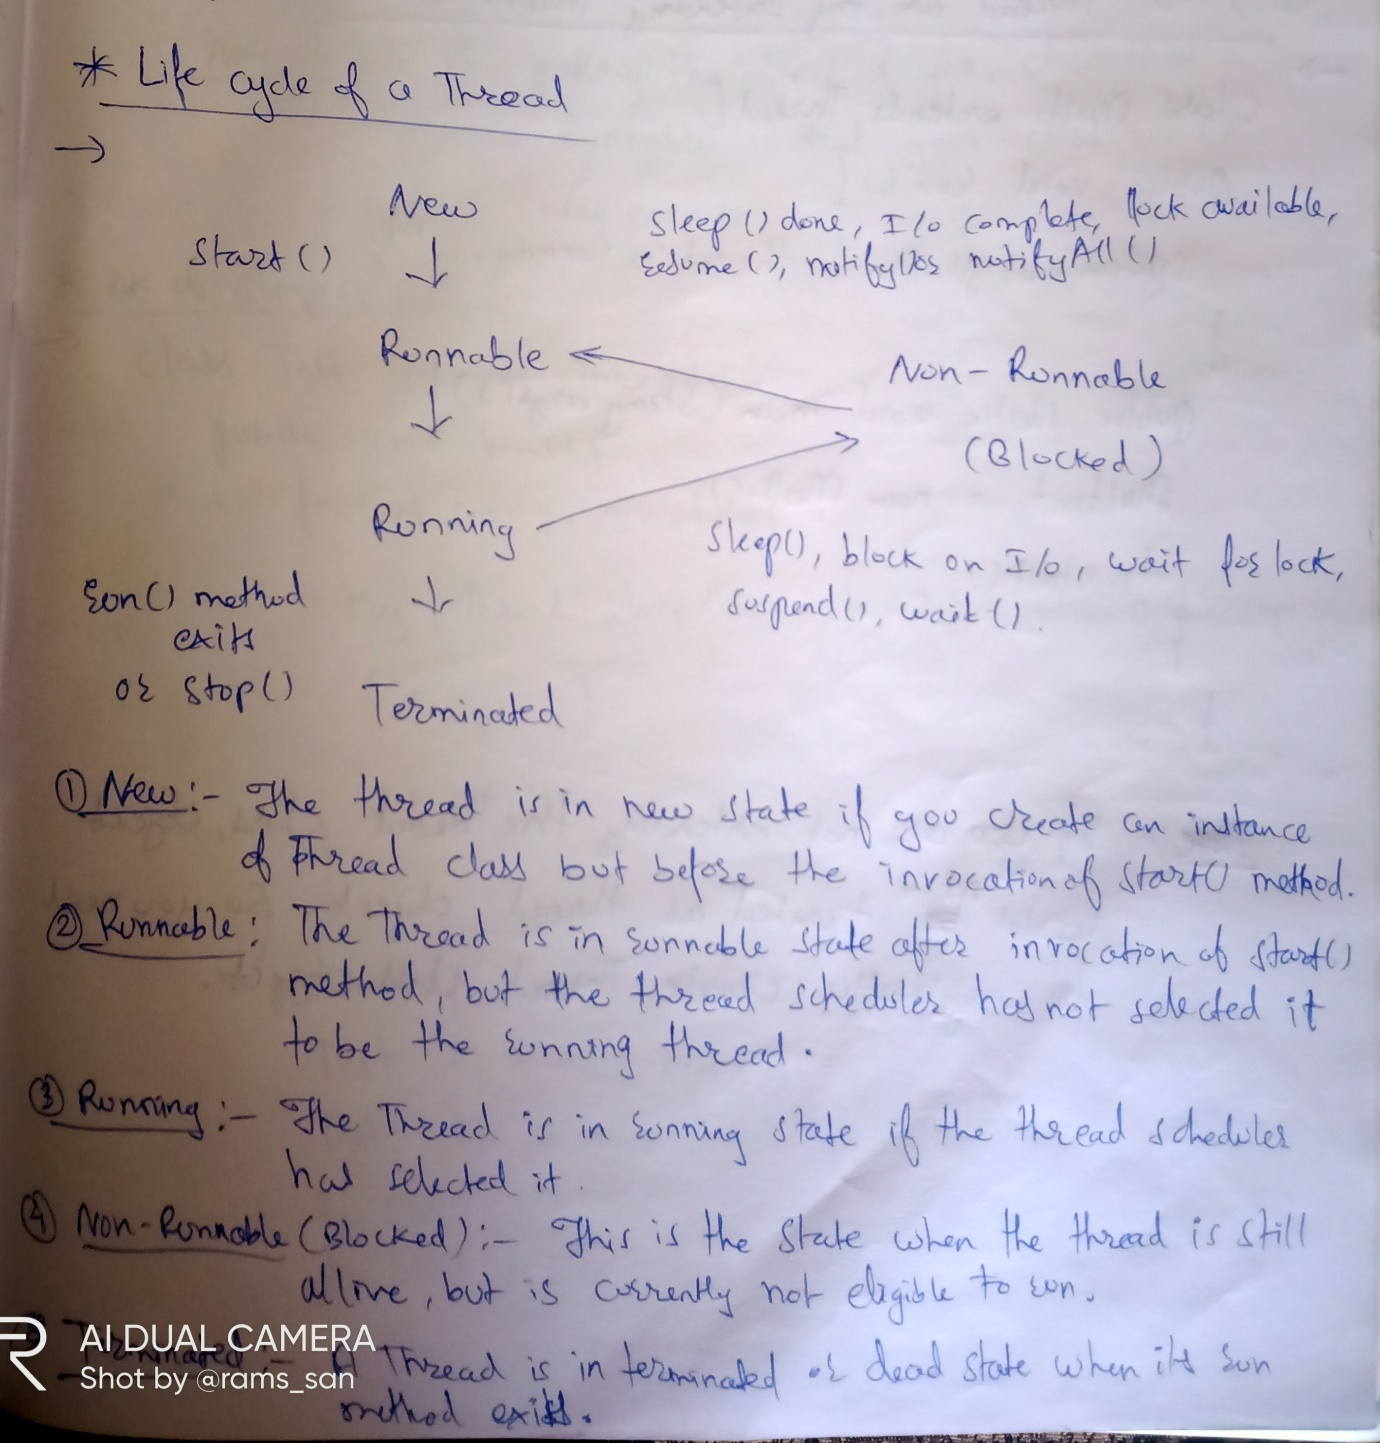 * Life cycle of a Thread
→
New
Start ()
Sleep () done, I/o complete, lock available,
resume (), notify() or notifyAll ()
Runnable
Non-Runnable
(Blocked)
Running
Sleep(), block on I/o, wait for lock,
suspend(), wait ().
run() method
exits
or stop()
Terminated
① New :- The thread is in new state if you create an instance
of Thread class but before the invocation of start() method.
② Runnable : The Thread is in runnable state after invocation of start()
method, but the thread scheduler has not selected it
to be the running thread.
③ Running :- The Thread is in running state if the thread scheduler
has selected it.
④ Non-Runnable (Blocked) :- This is the state when the thread is still
allive, but is currently not eligible to run.
Terminated :- A Thread is in terminated or dead state when its run
method exits.
AI DUAL CAMERA
Shot by @rams_san